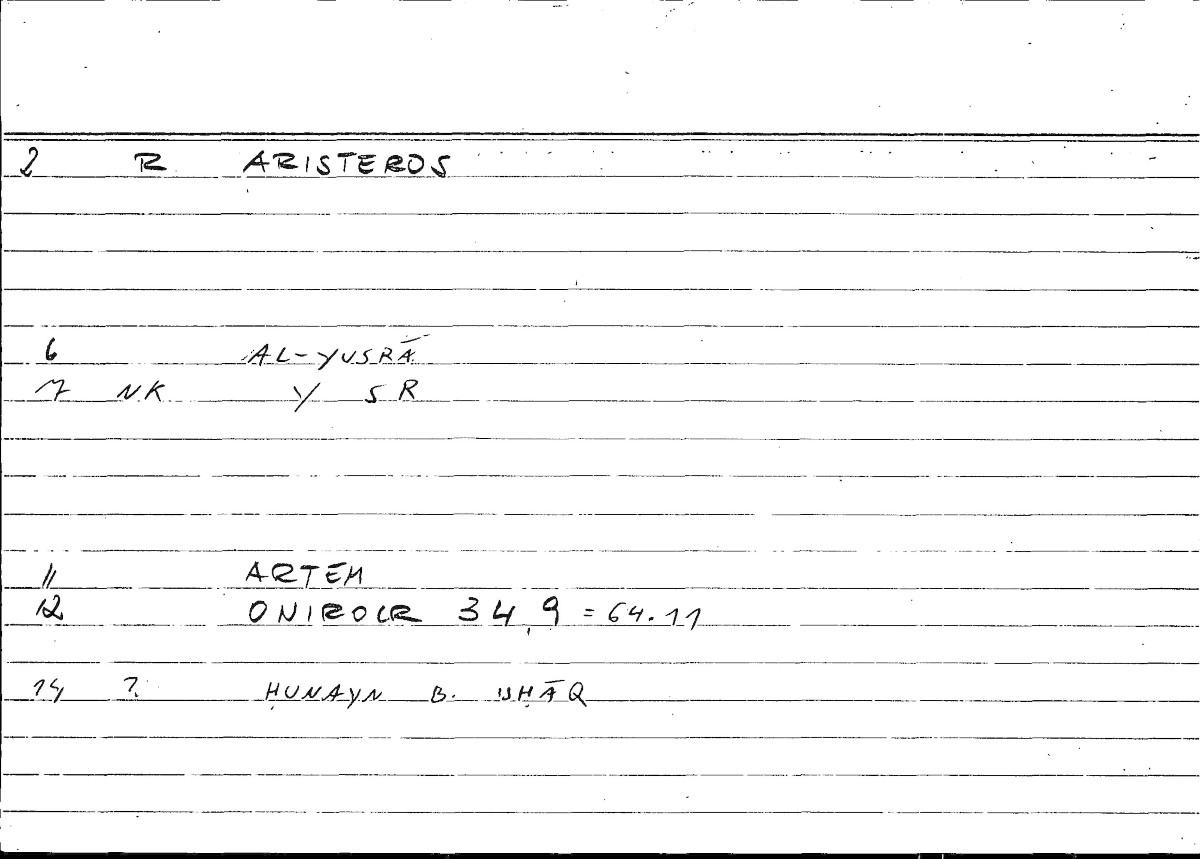 2 R ARISTEROS
6 AL-YUSRĀ
7 NK Y SR
11 ARTEM
12 ONIROCR 34,9 = 64.11
14 ? ḤUNAYN B. ISḤĀQ